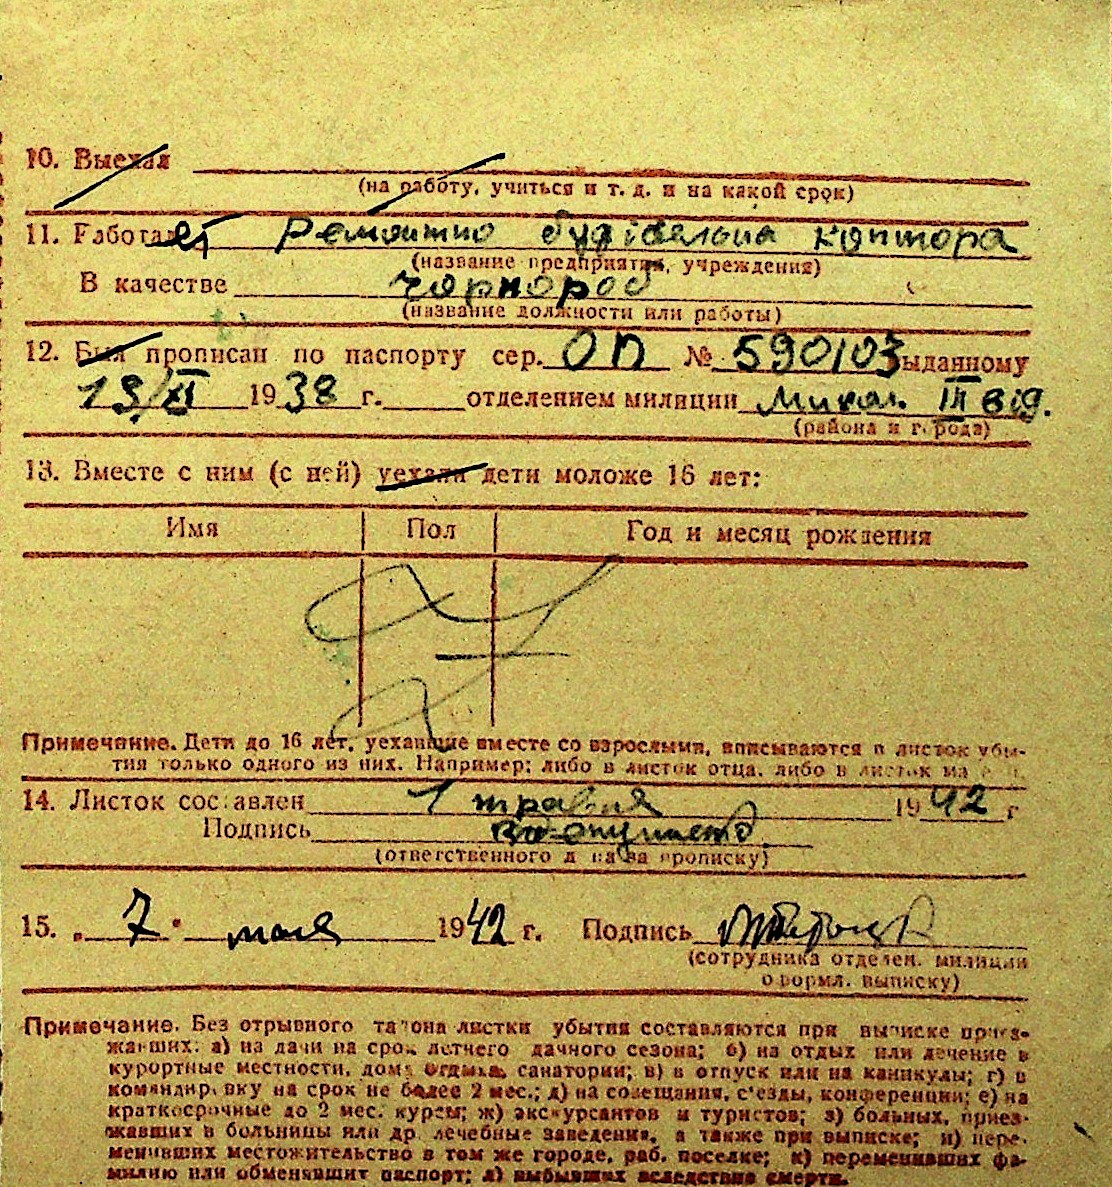 10. Выехал
(на работу, учиться и т. д. и на какой срок)
11. Работает Ремонтно будівельна контора
(название предприятия, учреждения)
В качестве чорнороб
(название должности или работы)
12. Был прописан по паспорту сер. ОП № 590103 выданному
13/XI 1938 г. отделением милиции Микол. III від.
(района и города)
13. Вместе с ним (с ней) уехали дети моложе 16 лет:
Имя Пол Год и месяц рождения
Примечание. Дети до 16 лет, уехавшие вместе со взрослыми, вписываются в листок убы-
тия только одного из них. Например: либо в листок отца, либо в листок
14. Листок составлен 1 травня 1942 г
Подпись
(ответственного за прописку)
15. „ 7 " мая 1942 г. Подпись
(сотрудника отделен. милиции
оформл. выписку)
Примечание. Без отрывного талона листки убытия составляются при выписке приез-
жавших: а) из дачи на срок летнего дачного сезона; б) на отдых или лечение в
курортные местности, дома отдыха, санатории; в) в отпуск или на каникулы; г) в
командировку на срок не более 2 мес.; д) на совещания, с'езды, конференции; е) на
краткосрочные до 2 мес. курсы; ж) экскурсантов и туристов; з) больных, приез-
жавших в больницы или др. лечебные заведения, а также при выписке; и) пере-
менивших местожительство в том же городе, раб. поселке; к) переменивших фа-
милию или обменявших паспорт; л) выбывших вследствие смерти.